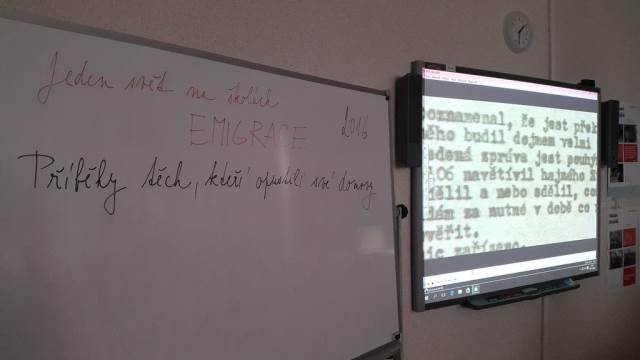 Jeden svět na školách
EMIGRACE 2016
Příběhy těch, kteří opustili své domovy
poznamenal, že jest přek
ného budil dojem velmi
edená zpráva jest pouhý
806 navštívil hajného
dělil a nebo sdělil, co
dám za nutné v době co
věřit.
ic zařízeno.